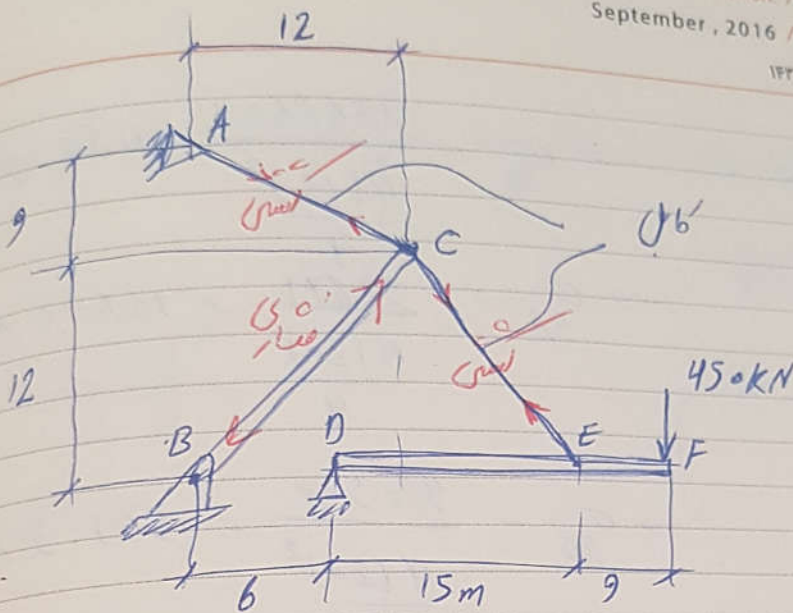 September, 2016 /
12
A
9
کششی
C
کابل
فشاری
کششی
12
450KN
B
D
E
F
6
15m
9